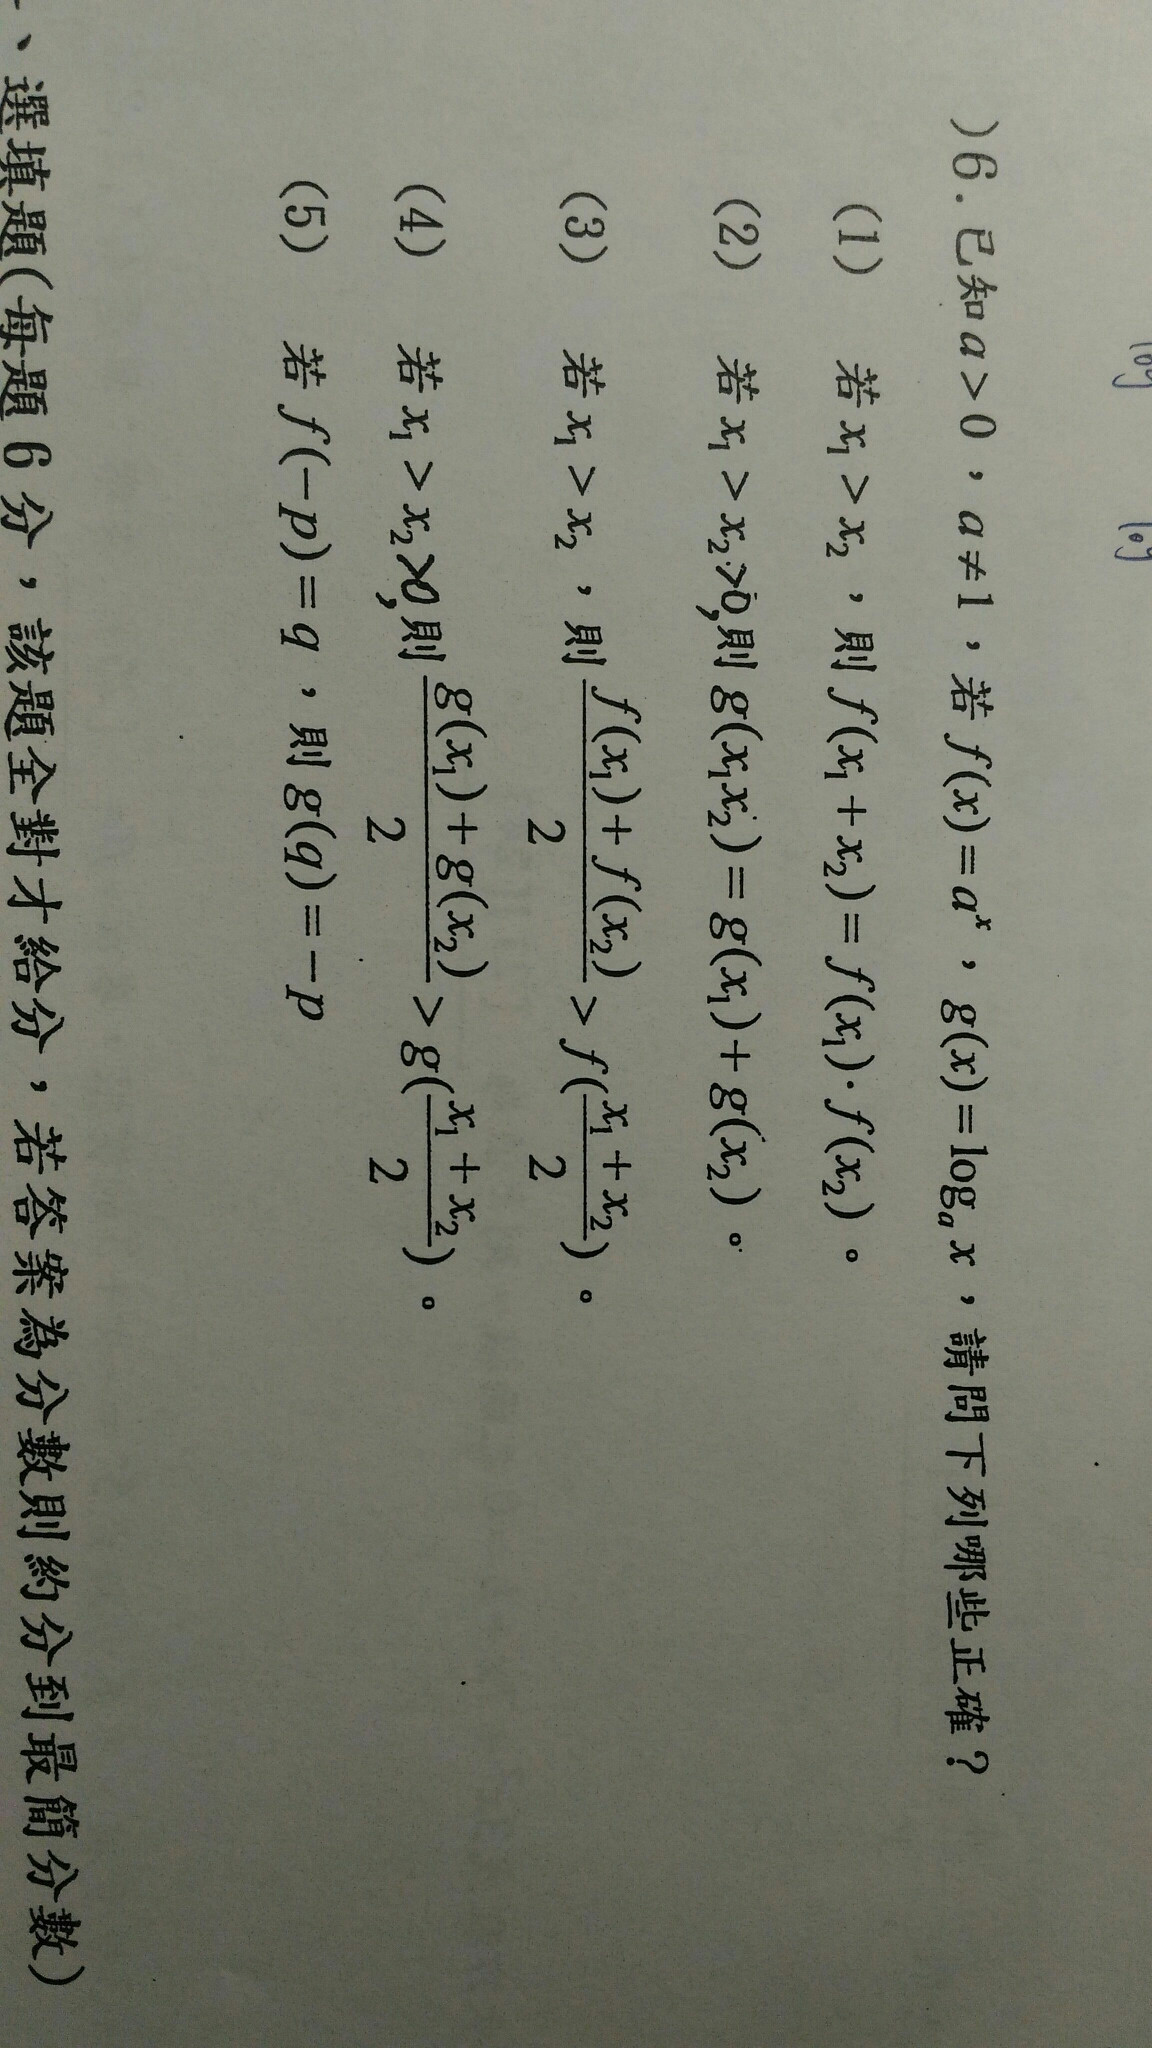 log log
)6. 已知 a>0，a≠1，若 f(x)=aˣ，g(x)=logₐ x，請問下列哪些正確？
(1) 若 x₁>x₂，則 f(x₁+x₂)=f(x₁)·f(x₂)。
(2) 若 x₁>x₂>0,則 g(x₁x₂)=g(x₁)+g(x₂)。
(3) 若 x₁>x₂，則 \frac{f(x₁)+f(x₂)}{2}>f(\frac{x₁+x₂}{2})。
(4) 若 x₁>x₂>0,則 \frac{g(x₁)+g(x₂)}{2}>g(\frac{x₁+x₂}{2})。
(5) 若 f(-p)=q，則 g(q)=-p
、選填題(每題 6 分，該題全對才給分，若答案為分數則約分到最簡分數)